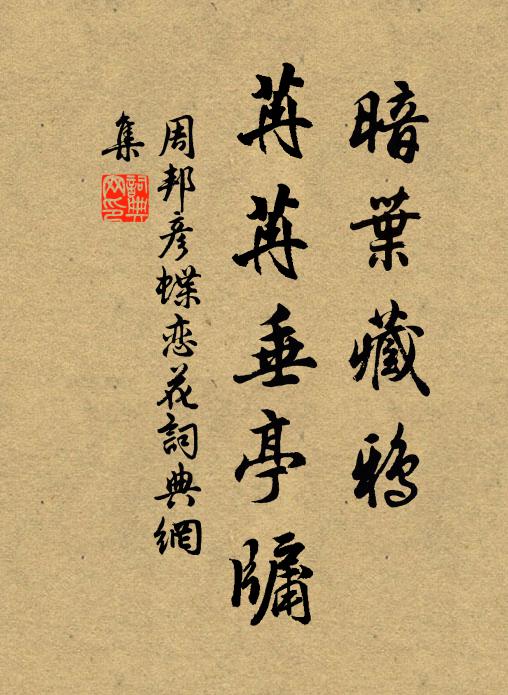 暗葉藏鴉
苒苒垂亭牖
周邦彥蝶恋花詞典網
集
詞典網印